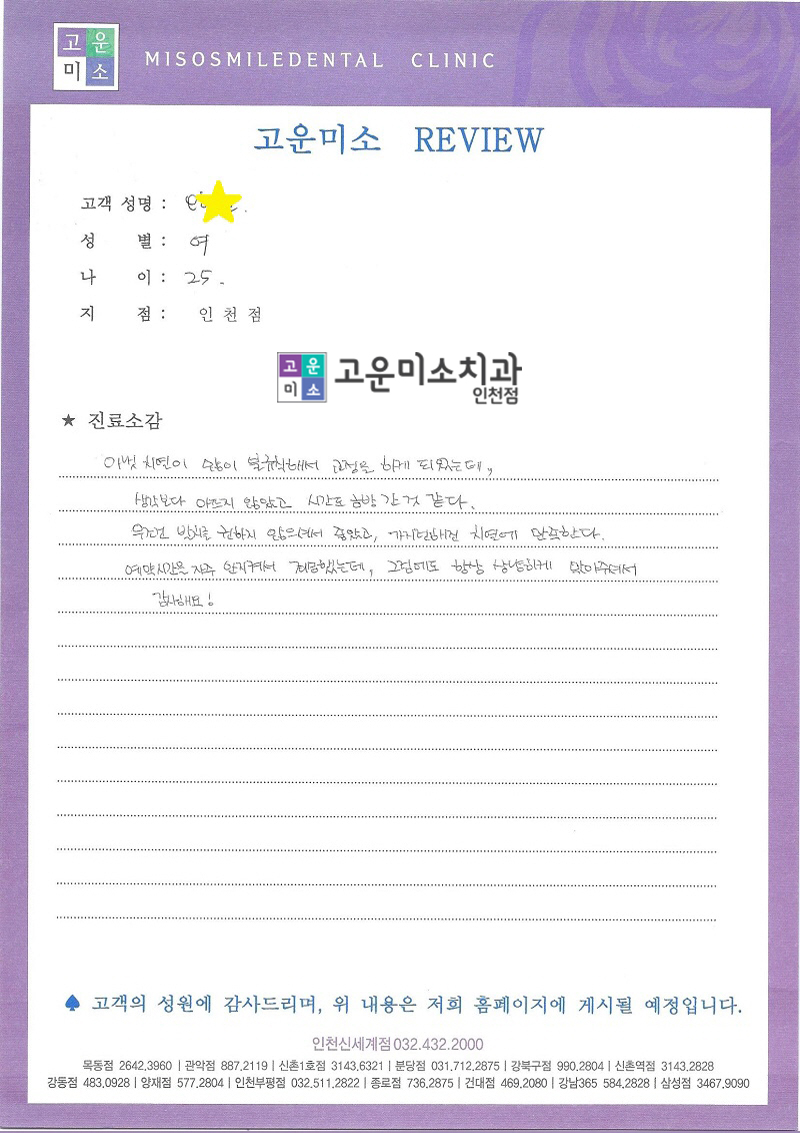 고운
미소
MISOSMILEDENTAL CLINIC
고운미소 REVIEW
고객 성명 :
성 별 : 여
나 이 : 25.
지 점 : 인천점
고운
미소
고운미소치과
인천점
★ 진료소감
아랫 치열이 많이 불규칙해서 교정을 하게 되었는데,
생각보다 아프지 않았고 시간도 금방 간 것 같다.
무조건 발치를 권하지 않으셔서 좋았고, 가지런해진 치열에 만족한다.
예약시간을 자주 안지켜서 죄송했는데, 그럼에도 항상 상냥하게 맞아주셔서
감사해요!
♠ 고객의 성원에 감사드리며, 위 내용은 저희 홈페이지에 게시될 예정입니다.
인천신세계점 032.432.2000
목동점 2642.3960 | 관악점 887.2119 | 신촌1호점 3143.6321 | 분당점 031.712.2875 | 강북구점 990.2804 | 신촌역점 3143.2828
강동점 483.0928 | 양재점 577.2804 | 인천부평점 032.511.2822 | 종로점 736.2875 | 건대점 469.2080 | 강남365 584.2828 | 삼성점 3467.9090